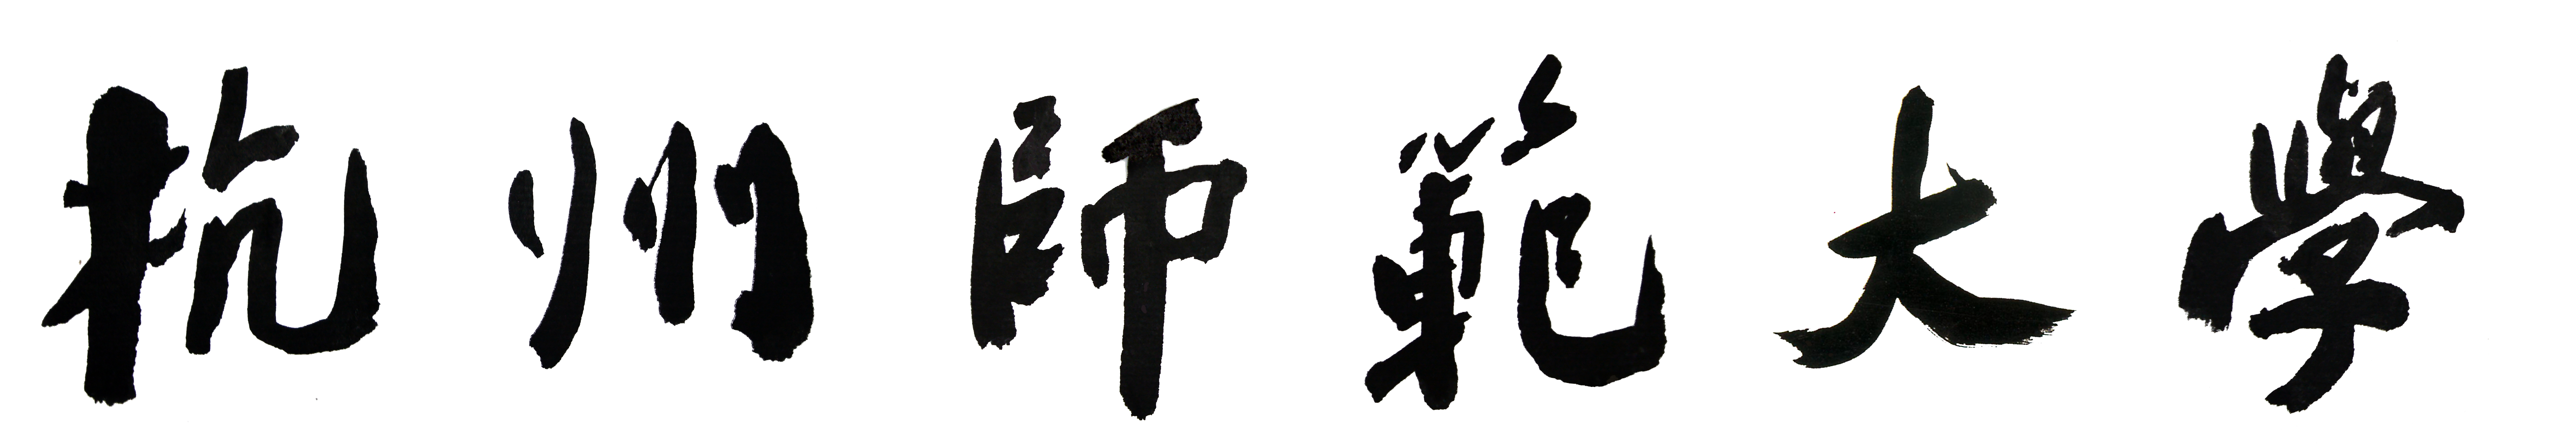 杭州師範大學